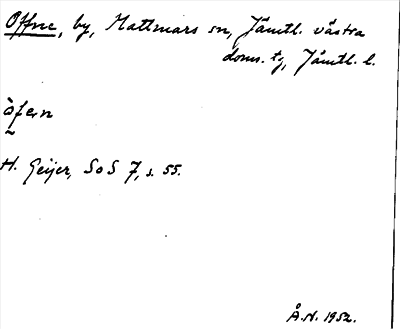 Offne, by, Mattmars sn, Jämtl. västra
doms. tg, Jämtl. l.
òfen
H. Geijer, SoS 7, s. 55.
Å.N. 1952.